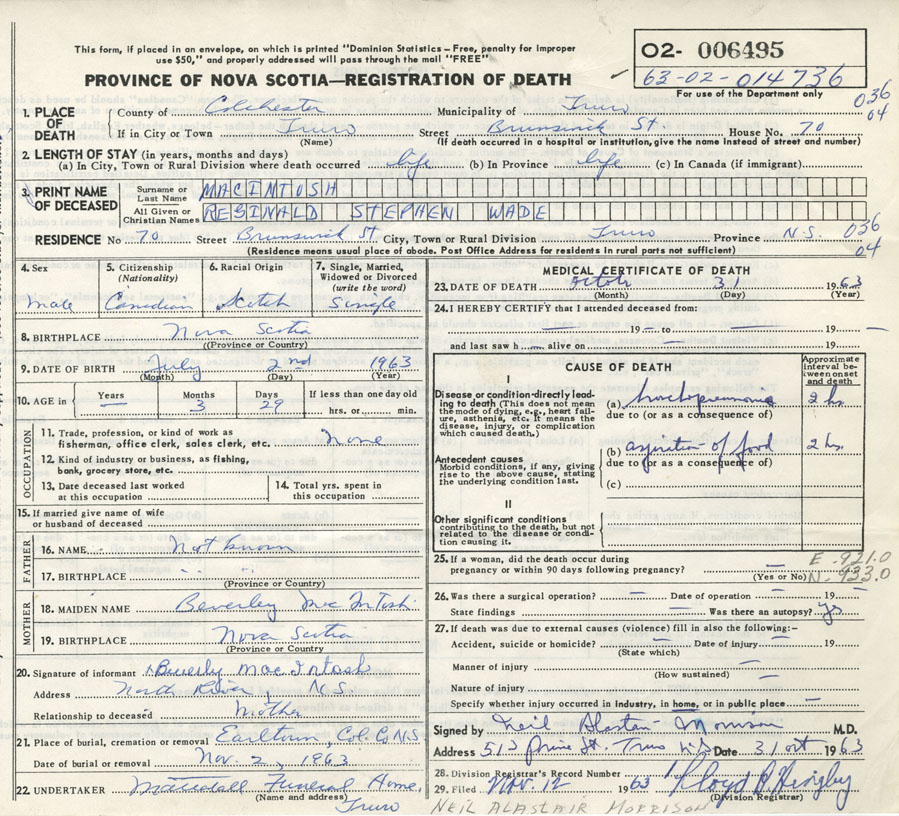 This form, if placed in an envelope, on which is printed "Dominion Statistics – Free, penalty for improper
use $50," and properly addressed will pass through the mail "FREE"
O2- 006495
63-02-014736
For use of the Department only
PROVINCE OF NOVA SCOTIA—REGISTRATION OF DEATH
036
04
1. PLACE OF DEATH County of Colchester Municipality of Truro
If in City or Town Truro Street Brunswick St House No. 70
(Name) (If death occurred in a hospital or institution, give the name instead of street and number)
2. LENGTH OF STAY (in years, months and days)
(a) In City, Town or Rural Division where death occurred life (b) In Province life (c) In Canada (if immigrant)
3. PRINT NAME OF DECEASED Surname or Last Name MACINTOSH
All Given or Christian Names REGINALD STEPHEN WADE
RESIDENCE No 70 Street Brunswick St City, Town or Rural Division Truro Province N.S. 036
04
(Residence means usual place of abode. Post Office Address for residents in rural parts not sufficient)
4. Sex Male
5. Citizenship (Nationality) Canadian
6. Racial Origin Scotch
7. Single, Married, Widowed or Divorced (write the word) Single
8. BIRTHPLACE Nova Scotia
(Province or Country)
9. DATE OF BIRTH July 2nd 1963
(Month) (Day) (Year)
10. AGE in Years — Months 3 Days 29 If less than one day old
hrs. or min.
OCCUPATION
11. Trade, profession, or kind of work as
fisherman, office clerk, sales clerk, etc. None
12. Kind of industry or business, as fishing,
bank, grocery store, etc.
13. Date deceased last worked
at this occupation
14. Total yrs. spent in
this occupation
15. If married give name of wife
or husband of deceased
FATHER
16. NAME Not known
17. BIRTHPLACE " "
(Province or Country)
MOTHER
18. MAIDEN NAME Beverley MacIntosh
19. BIRTHPLACE Nova Scotia
(Province or Country)
20. Signature of informant Beverly MacIntosh
Address North River, N.S.
Relationship to deceased Mother
21. Place of burial, cremation or removal Earltown, Col. Co N.S
Date of burial or removal Nov. 2, 1963
22. UNDERTAKER Funeral Home,
(Name and address) Truro
MEDICAL CERTIFICATE OF DEATH
23. DATE OF DEATH 31 1963
(Month) (Day) (Year)
24. I HEREBY CERTIFY that I attended deceased from:
— 19 — to — 19 —
and last saw h — alive on — 19
CAUSE OF DEATH
Approximate interval between onset and death
I
Disease or condition directly leading to death (This does not mean the mode of dying, e.g., heart failure, asthenia, etc. It means the disease, injury, or complication which caused death.)
(a) 2 hs.
due to (or as a consequence of)
Antecedent causes
Morbid conditions, if any, giving rise to the above cause, stating the underlying condition last.
(b) aspiration of food 2 hs.
due to (or as a consequence of)
(c)
II
Other significant conditions
contributing to the death, but not related to the disease or condition causing it.
25. If a woman, did the death occur during
pregnancy or within 90 days following pregnancy? —
(Yes or No)
E. 921.0
N. 933.0
26. Was there a surgical operation? — Date of operation — 19 —
State findings Was there an autopsy? yes
27. If death was due to external causes (violence) fill in also the following:–
Accident, suicide or homicide? — Date of injury — 19
(State which)
Manner of injury —
(How sustained)
Nature of injury
Specify whether injury occurred in industry, in home, or in public place —
Signed by Neil Alastair Morrison M.D.
Address 513 Prince St. Truro N.S Date 31 Oct 1963
28. Division Registrar's Record Number
29. Filed Nov. 12 1963
(Division Registrar)
NEIL ALASTAIR MORRISON